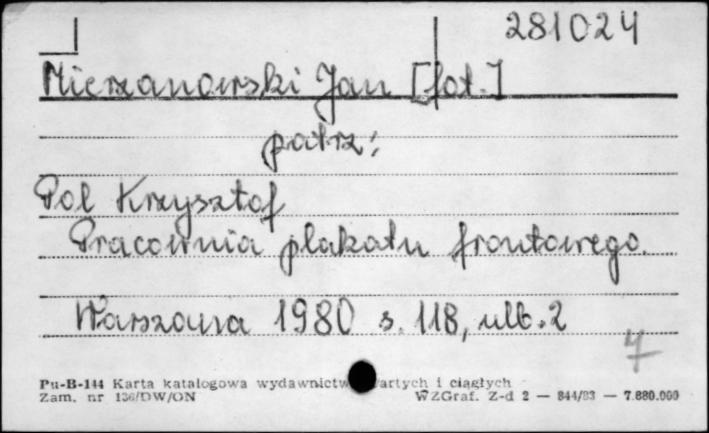 281024
Mierzanowski Jan [fot.]
patrz:
Pol Krzysztof
Pracownia plakatu frontowego.
Warszawa 1980 s. 118, nlb. 2
7
Pu-B-144 Karta katalogowa wydawnictw wartych i ciągłych
Zam. nr 136/DW/ON WZGraf. Z-d 2 — 844/83 — 7.880.000